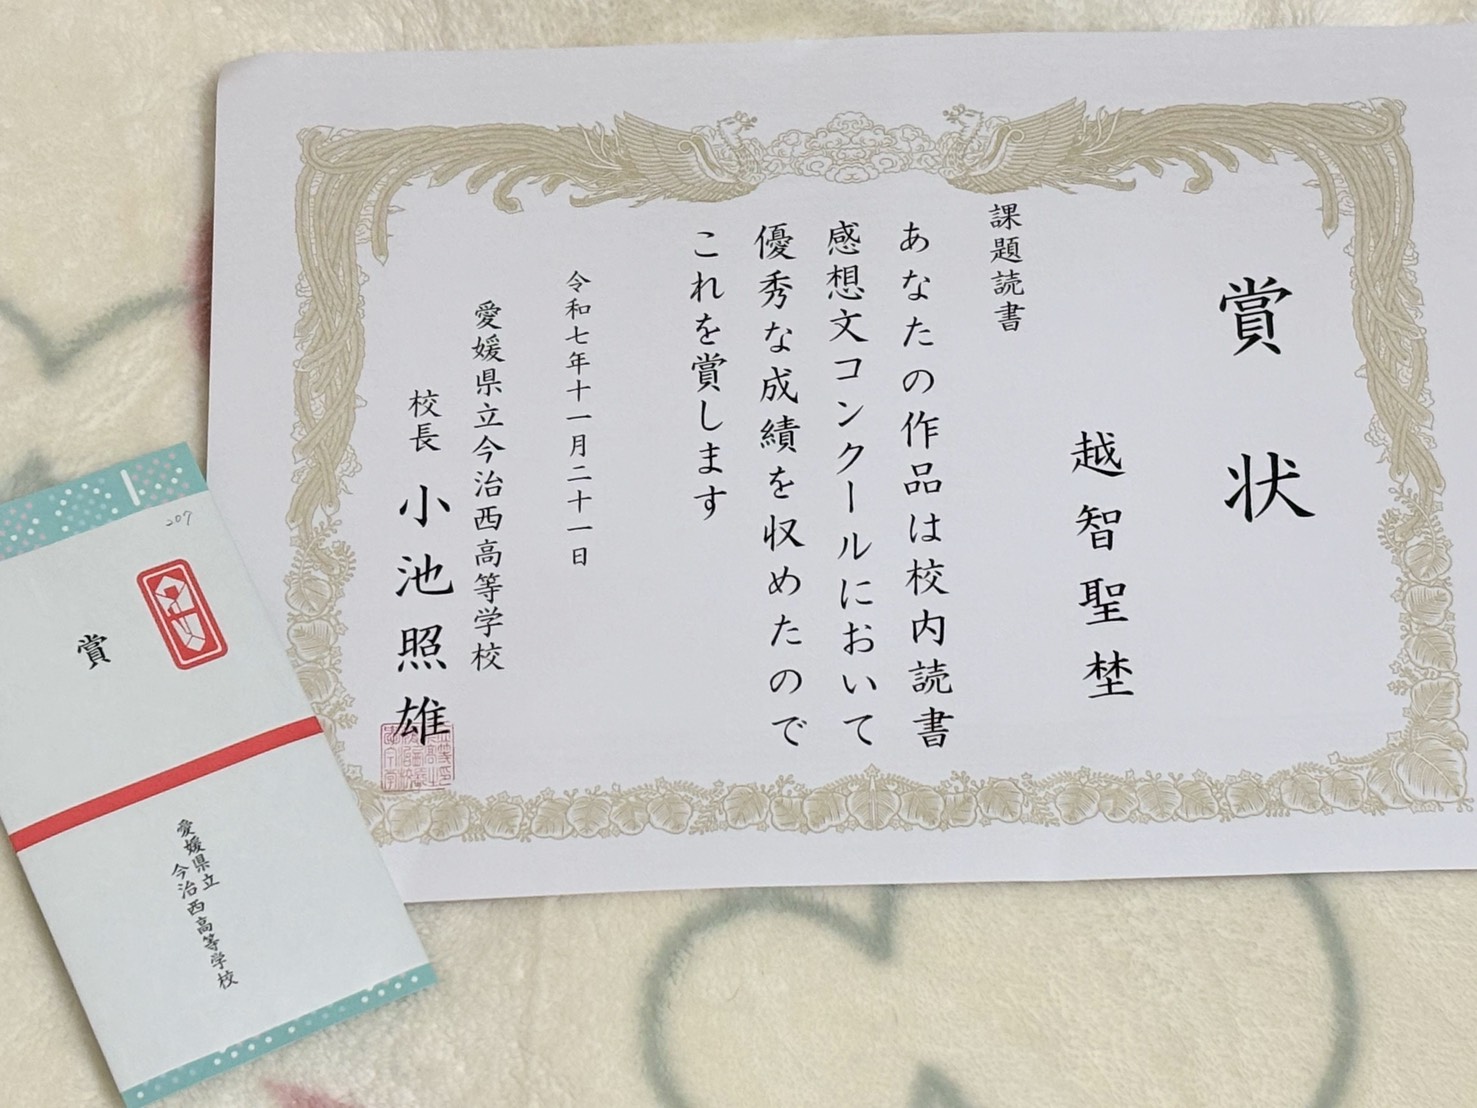 賞状
越智聖埜
課題読書
あなたの作品は校内読書
感想文コンクールにおいて
優秀な成績を収めたので
これを賞します
令和七年十一月二十一日
愛媛県立今治西高等学校
校長 小池照雄
207
賞
愛媛県立
今治西高等学校